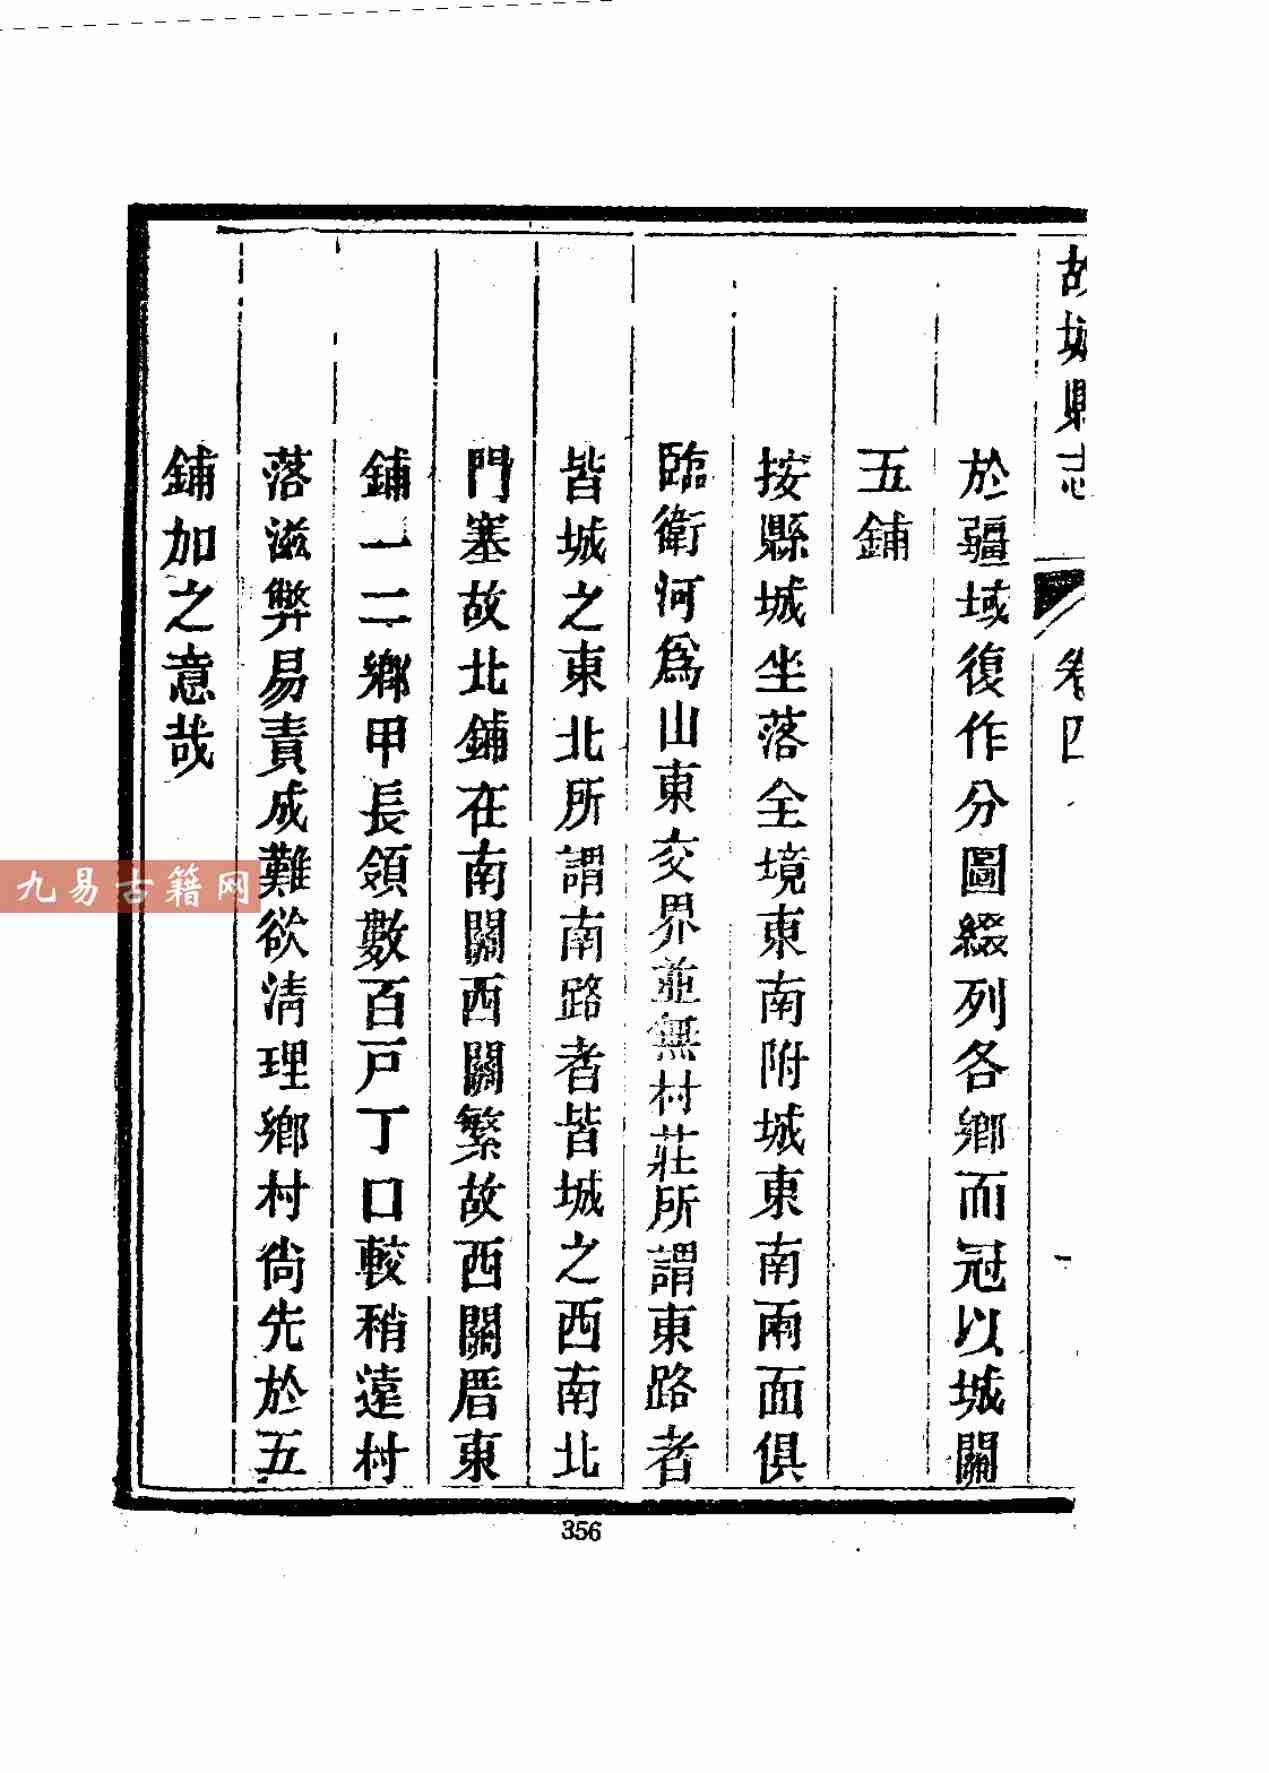 故城縣志
卷四
於疆域復作分圖綴列各鄉而冠以城關
五鋪
按縣城坐落全境東南附城東南兩面俱
臨衛河為山東交界並無村莊所謂東路者
皆城之東北所謂南路者皆城之西南北
門塞故北鋪在南關西關繁故西關居東
鋪一二鄉甲長領數百戶丁口較稍遠村
落滋弊易責成難欲清理鄉村尚先於五
鋪加之意哉
356
九易古籍网